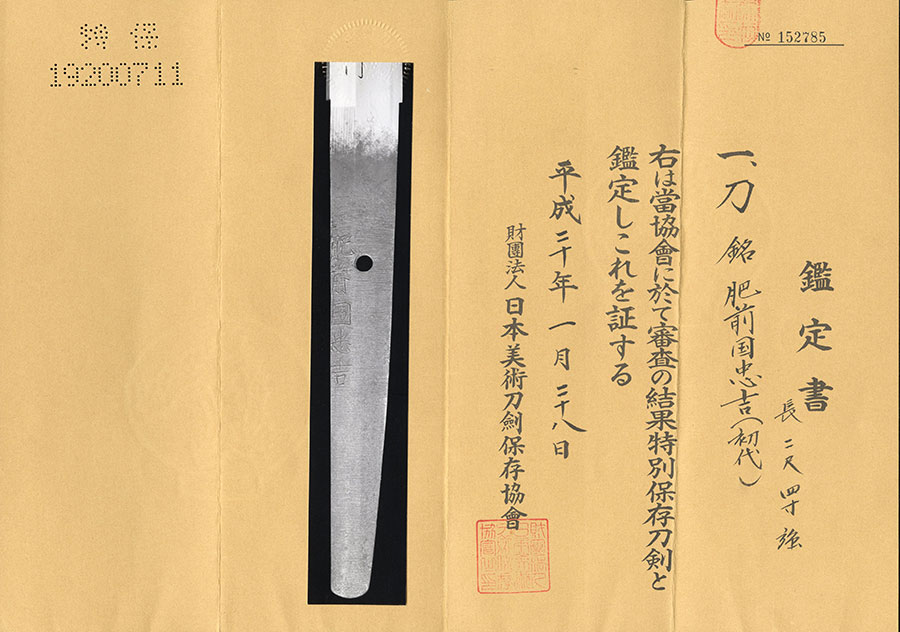 № 152785
鑑定書
一、刀 銘 肥前国忠吉(初代)
長二尺四寸強
右は當協會に於て審査の結果特別保存刀剣と
鑑定しこれを証する
平成二十年一月二十八日
財團法人 日本美術刀劍保存協會
特保
19200711
肥前國忠吉